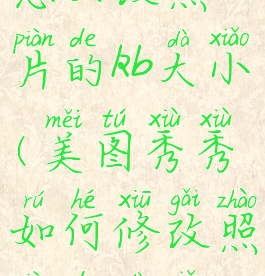 piàn de dà xiǎo
片的kb大小
měi tú xiù xiù
(美图秀秀
rú hé xiū gǎi zhào
如何修改照